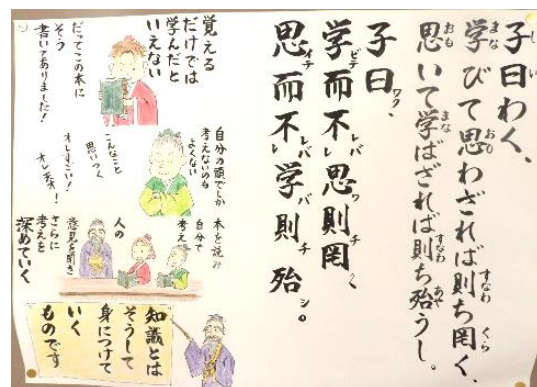 子曰わく、
学びて思わざれば則ち罔く
思いて学ばざれば則ち殆うし。
子曰、
学而不思則罔、
思而不学則殆。
覚える
だけでは
学んだと
いえない
だってこの本に
そう
書いてありました!
自分の頭でしか
考えないのも
よくない
こんなこと
思いつく
オレすごい!
オレ天才!
本を読み
自分で
考え
人の
意見を聞き
さらに
考えを
深めていく
知識とは
そうして
身につけて
いく
ものです